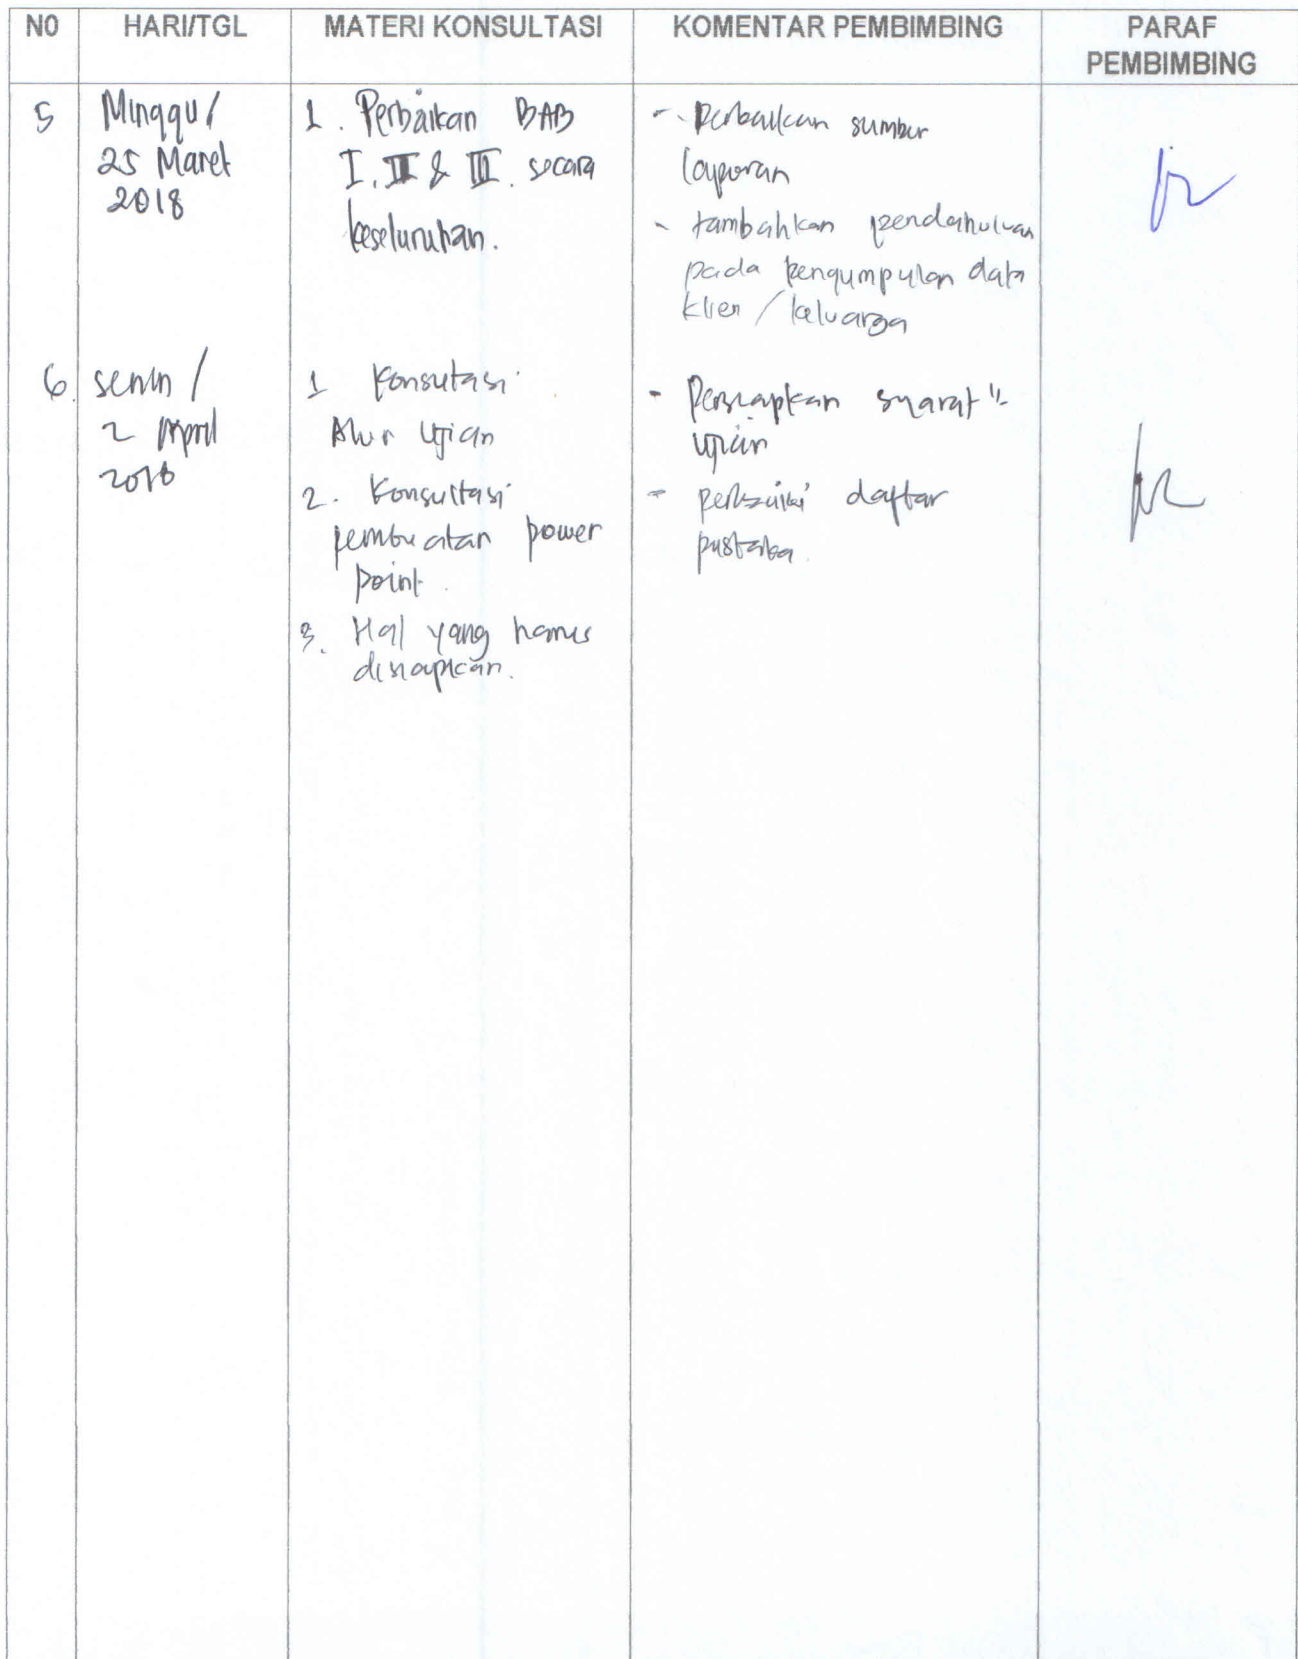 NO HARI/TGL MATERI KONSULTASI KOMENTAR PEMBIMBING PARAF
PEMBIMBING
5 Minggu/
25 Maret
2018
1. Perbaikan BAB
I, II & III. secara
keseluruhan.
- Perbaikan sumber
laporan
- tambahkan pendahuluan
pada pengumpulan data
klien / keluarga
6. senin /
2 April
2018
1 Konsutasi
Alur Ujian
2. Konsultasi
pembuatan power
point.
3. Hal yang harus
disiapkan.
- Persiapkan syarat"
ujian
- perbaiki daftar
pustaka.